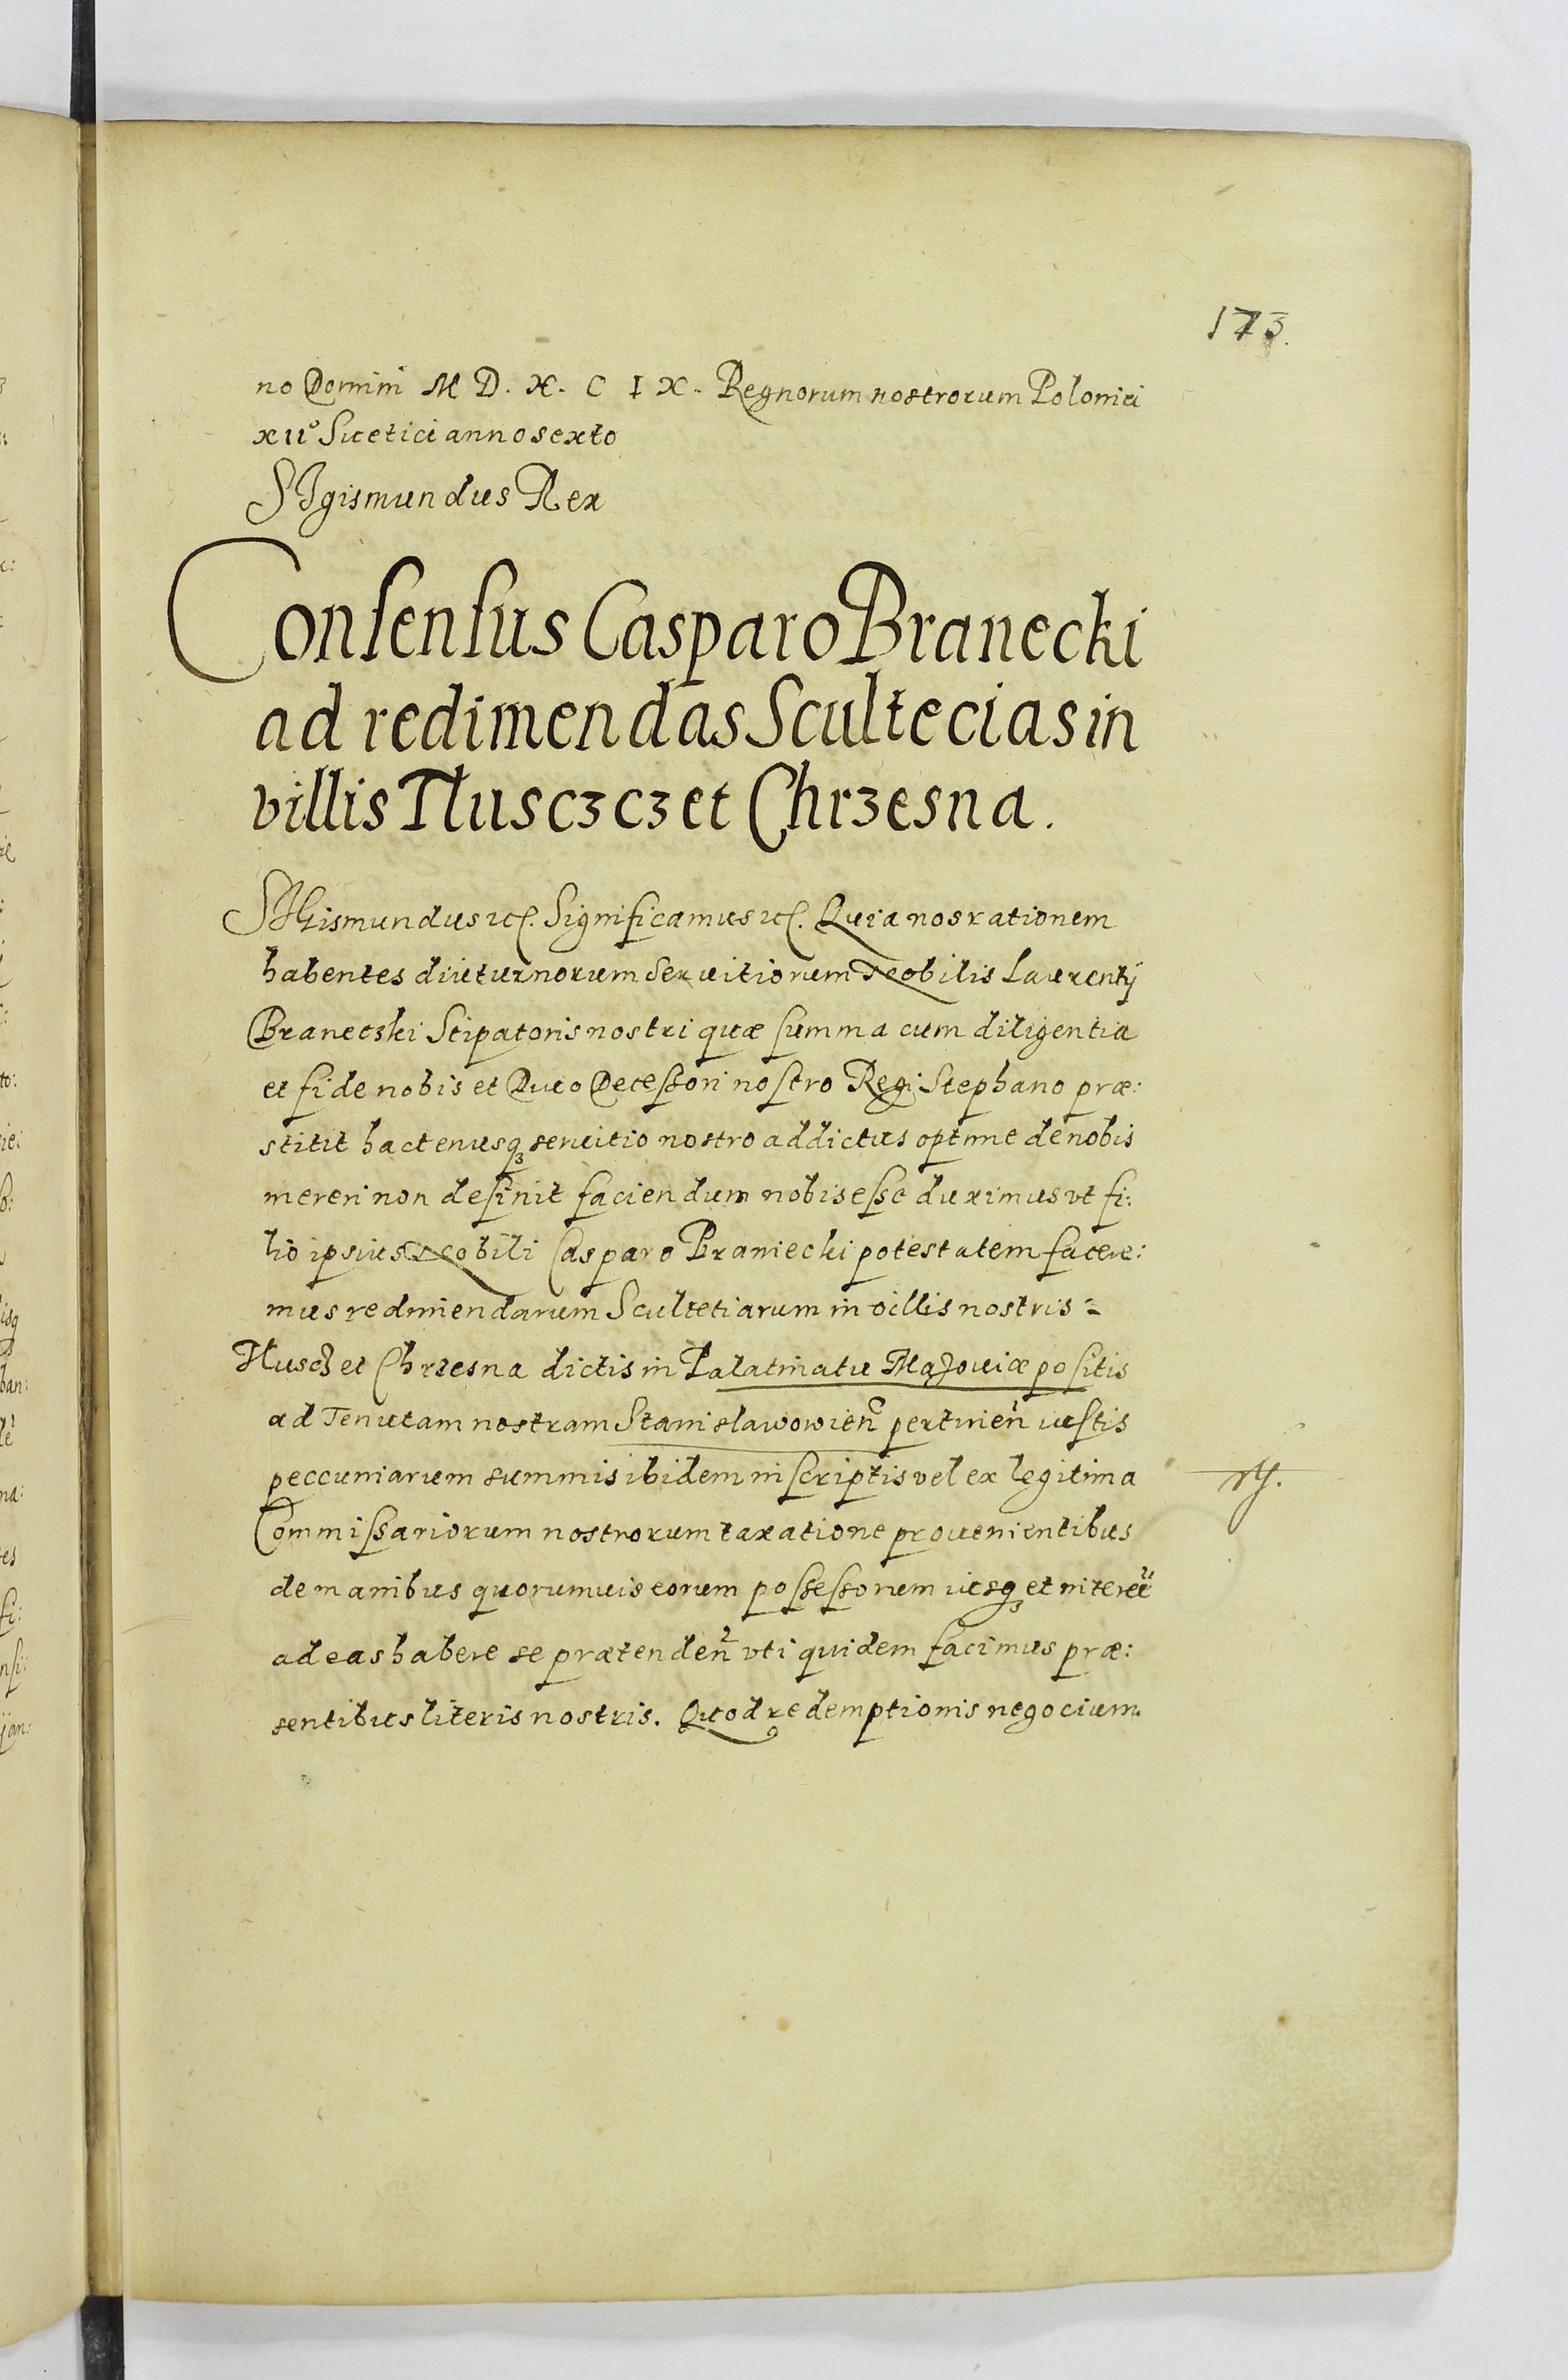 173.
no Domini M D. X. C I X. Regnorum nostrorum Polonici
xii° Suetici anno sexto
SIgismundus Rex
Consensus Casparo Branecki
ad redimendas Scultecias in
villis Tlusczcz et Chrzesna.
SIGismundus etc. Significamus etc. Quia nos rationem
habentes diuturnorum seruitiorum Nobilis Laurentij
Braneczki Stipatoris nostri quæ summa cum diligentia
et fide nobis et Diuo Decessori nostro Regi Stephano præ:
stitit hactenusq₃ seruitio nostro addictus optime de nobis
mereri non desinit faciendum nobis esse duximus vt fi:
lio ipsius Nobili Casparo Braniecki potestatem facere:
mus redimendarum Scultetiarum in villis nostris =
Tluscz et Chrzesna dictis in Palatinatu Mazouiæ positis
ad Tenutam nostram Stanislawowien pertinen iustis
peccuniarum summis ibidem inscriptis vel ex legitima
Commissariorum nostrorum taxatione prouenientibus
de manibus quorumuis eorum possessorum iusq₃ et interee
ad eas habere se prætenden vti quidem facimus præ:
sentibus literis nostris. Quod redemptionis negocium